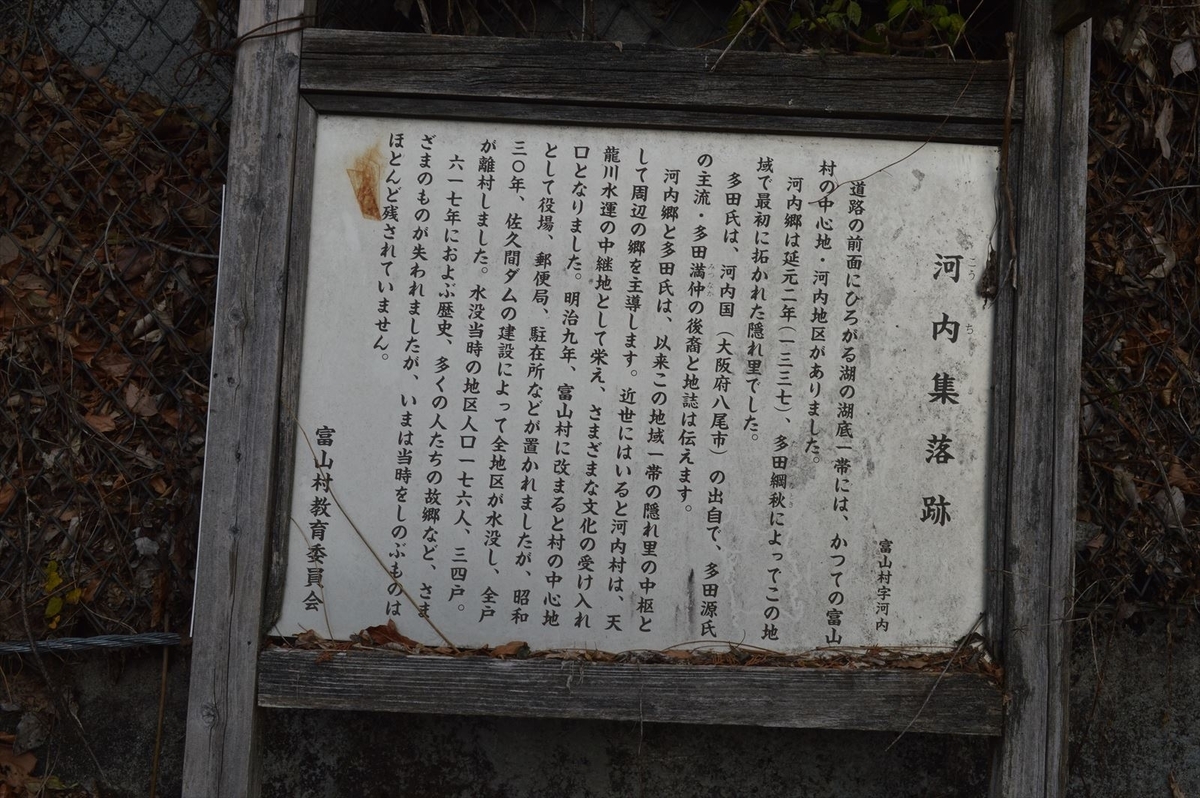 河内集落跡
こうち
富山村字河内
道路の前面にひろがる湖の湖底一帯には、かつての富山
村の中心地・河内地区がありました。
河内郷は延元二年(一三三七)、多田綱秋によってこの地
域で最初に拓かれた隠れ里でした。
多田氏は、河内国(大阪府八尾市)の出自で、多田源氏
の主流・多田満仲の後裔と地誌は伝えます。
河内郷と多田氏は、以来この地域一帯の隠れ里の中枢と
して周辺の郷を主導します。近世にはいると河内村は、天
龍川水運の中継地として栄え、さまざまな文化の受け入れ
口となりました。明治九年、富山村に改まると村の中心地
として役場、郵便局、駐在所などが置かれましたが、昭和
三〇年、佐久間ダムの建設によって全地区が水没し、全戸
が離村しました。水没当時の地区人口一七六人、三四戸。
六一七年におよぶ歴史、多くの人たちの故郷など、さま
ざまのものが失われましたが、いまは当時をしのぶものは
ほとんど残されていません。
富山村教育委員会